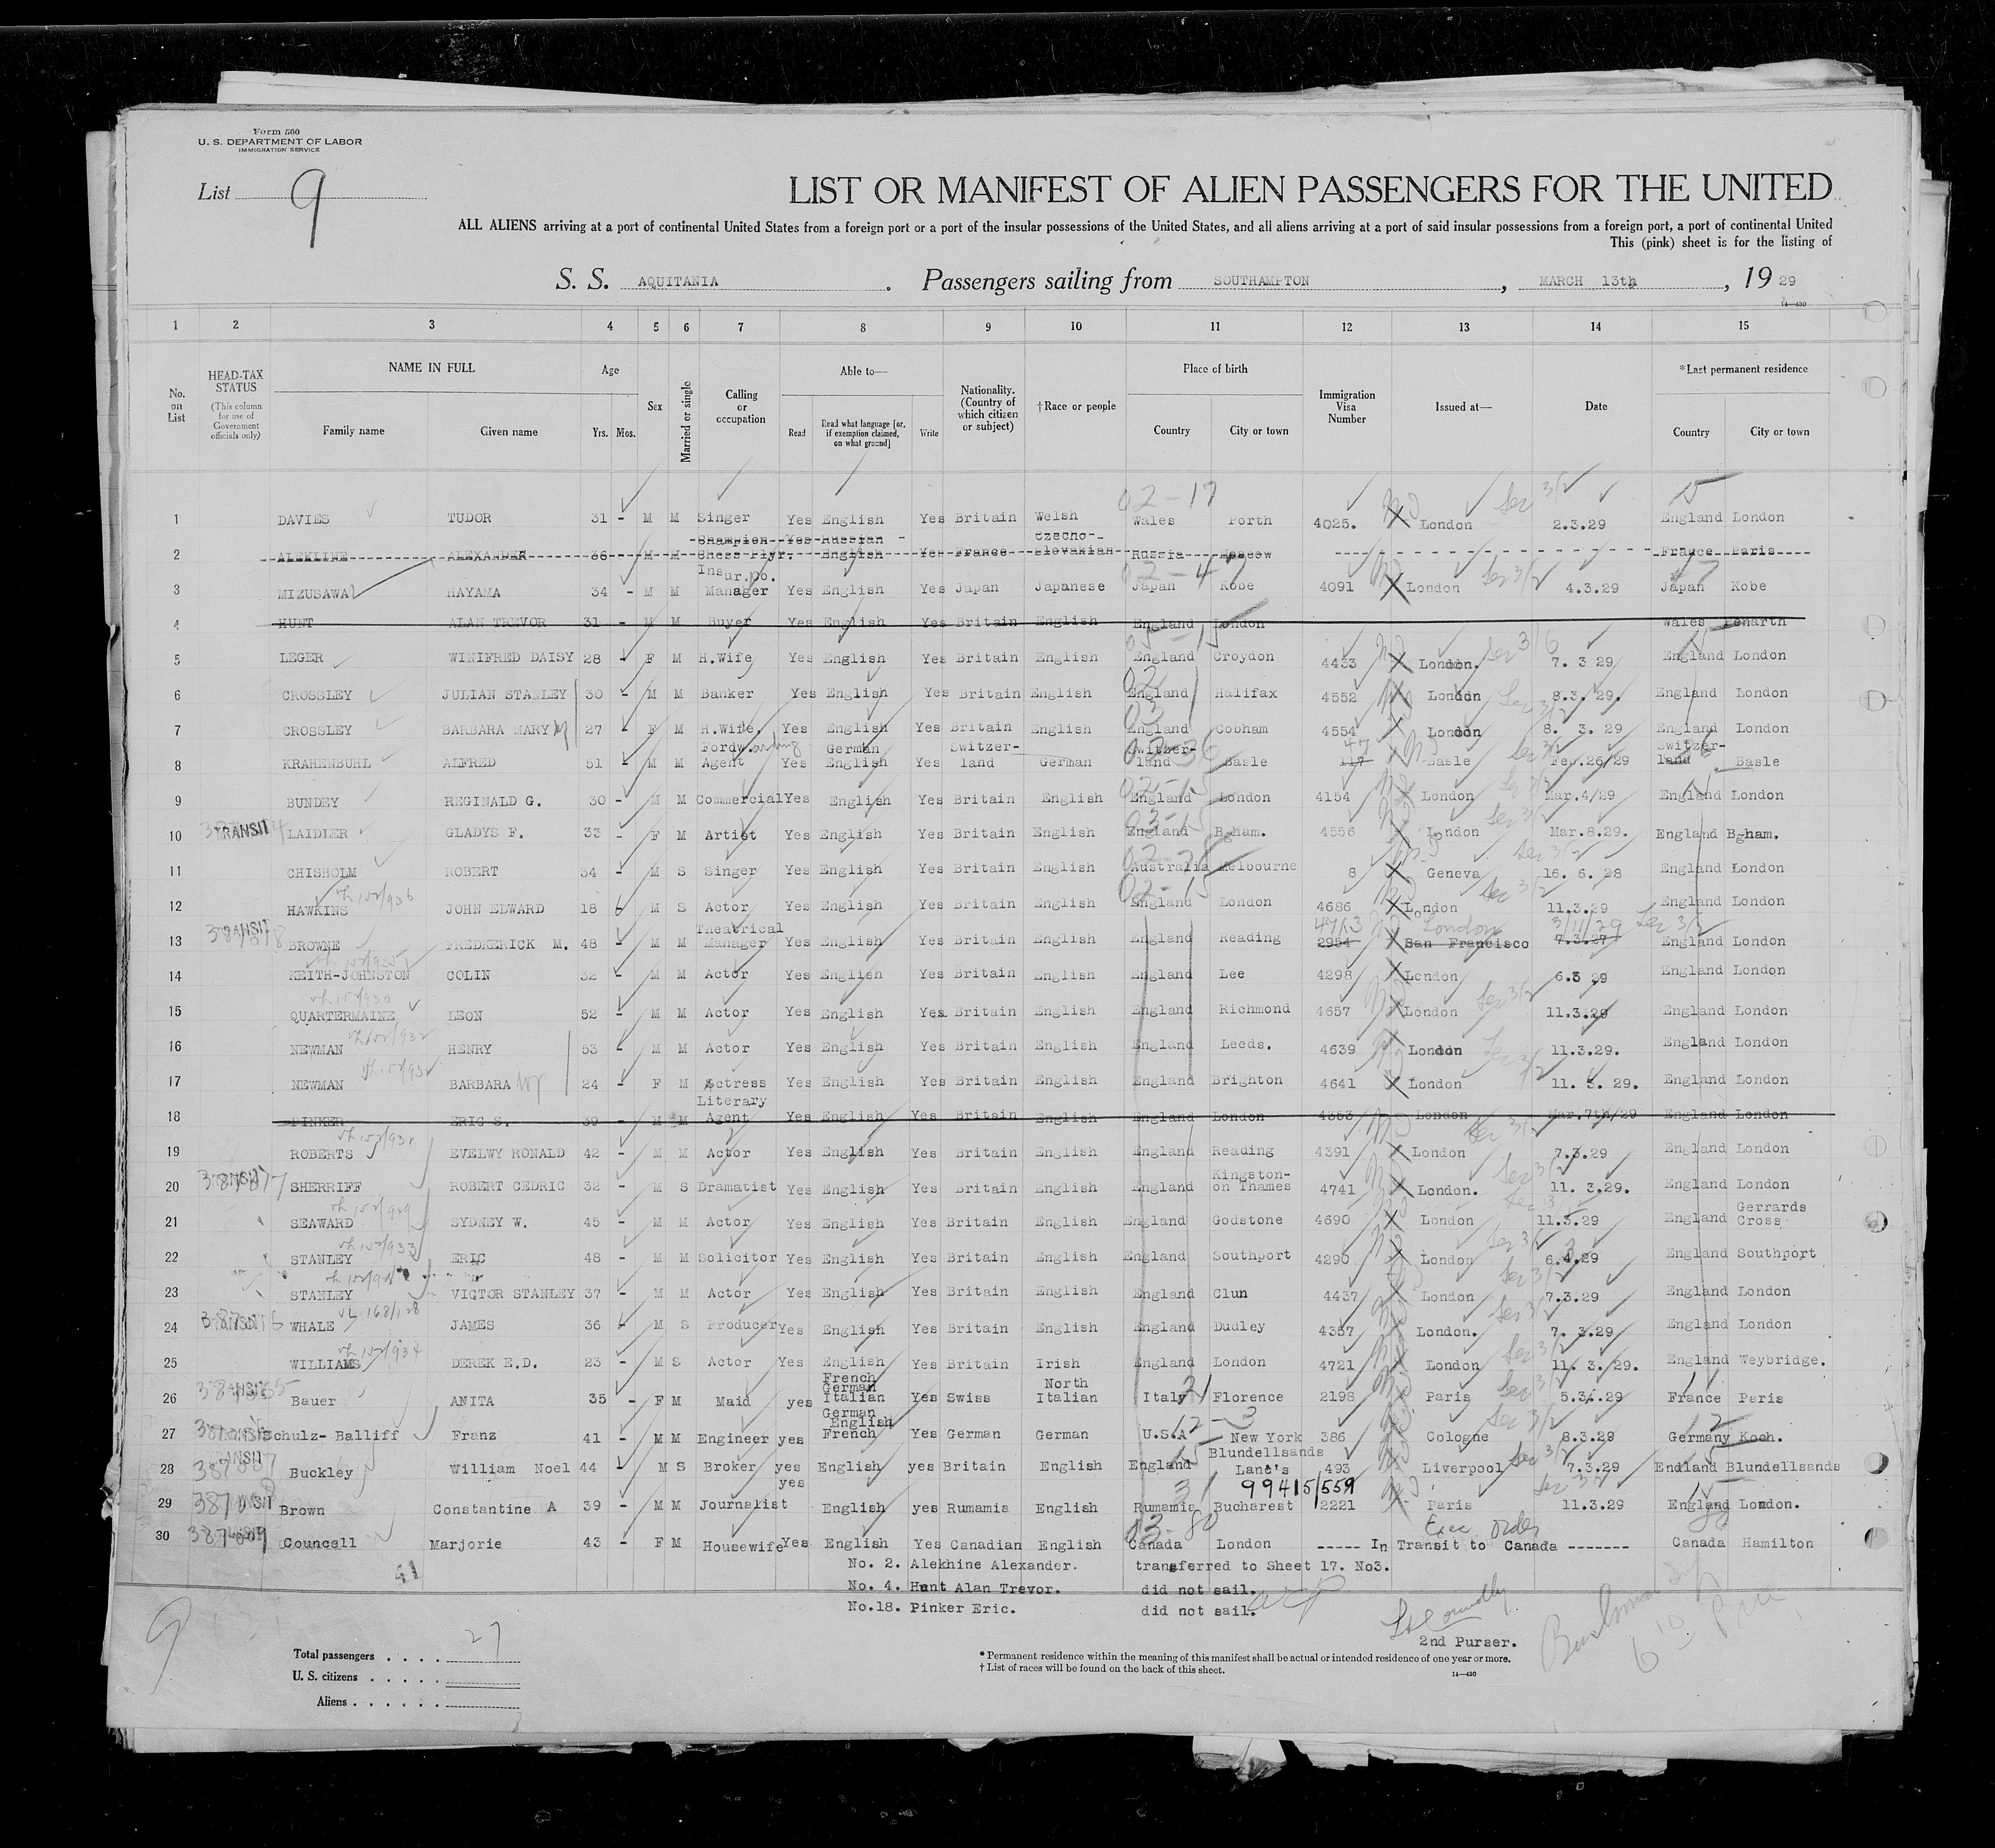 Form 500
U. S. DEPARTMENT OF LABOR
IMMIGRATION SERVICE
List 9
LIST OR MANIFEST OF ALIEN PASSENGERS FOR THE UNITED
ALL ALIENS arriving at a port of continental United States from a foreign port or a port of the insular possessions of the United States, and all aliens arriving at a port of said insular possessions from a foreign port, a port of continental United
This (pink) sheet is for the listing of
S. S. AQUITANIA . Passengers sailing from SOUTHAMPTON , MARCH 13th , 19 29
14—430
1 2 3 4 5 6 7 8 9 10 11 12 13 14 15
No. on List HEAD-TAX STATUS (This column for use of Government officials only) NAME IN FULL Family name Given name Age Yrs. Mos. Sex Married or single Calling or occupation Able to— Read Read what language [or, if exemption claimed, on what ground] Write Nationality. (Country of which citizen or subject) †Race or people Place of birth Country City or town Immigration Visa Number Issued at— Date *Last permanent residence Country City or town
02-17
1 DAVIES TUDOR 31 - M M Singer Yes English Yes Britain Welsh Wales Porth 4025. London 2.3.29 England London
2 ALEKLINE ALEXANDER 36 M M Champion Chess Plyr. Yes Russian English Yes France Czecho-slovakian Russia Moscow France Paris
3 MIZUSAWA HAYAMA 34 - M M Insur.Co. Manager Yes English Yes Japan Japanese Japan Kobe 4091 London 4.3.29 Japan Kobe
4 HUNT ALAN TREVOR 31 - M M Buyer Yes English Yes Britain English England London Wales Penarth
5 LEGER WINIFRED DAISY 28 - F M H.Wife Yes English Yes Britain English England Croydon 4433 London. 7. 3 29 England London
6 CROSSLEY JULIAN STANLEY 30 - M M Banker Yes English Yes Britain English England Halifax 4552 London 8.3. 29. England London
7 CROSSLEY BARBARA MARY 27 - F M H.Wife. Yes English Yes Britain English England Cobham 4554 London 8. 3. 29 England London
8 KRAHENBUHL ALFRED 51 - M M Fordwarding Agent Yes German English Yes Switzer-land German Switzer-land Basle 47 117 Basle Feb.26/29 Switzer-land Basle
9 BUNDEY REGINALD G. 30 - M M Commercial Yes English Yes Britain English England London 4154 London Mar.4/29 England London
10 TRANSIT LAIDLER GLADYS F. 33 - F M Artist Yes English Yes Britain English England Bgham. 4556 London Mar.8.29. England Bgham.
11 CHISHOLM ROBERT 34 - M S Singer Yes English Yes Britain English Australia Melbourne 8 Geneva 16. 6. 28 England London
12 HAWKINS JOHN EDWARD 18 6 M S Actor Yes English Yes Britain English England London 4686 London 11.3.29 England London
13 TRANSIT BROWNE FREDKERICK M. 48 - M M Theatrical Manager Yes English Yes Britain English England Reading 4713 2954 London San Francisco 3/11/29 7.3.27 England London
14 KEITH-JOHNSTON COLIN 32 - M M Actor Yes English Yes Britain English England Lee 4298 London 6.3 29 England London
15 QUARTERMAINE LEON 52 - M M Actor Yes English Yes Britain English England Richmond 4657 London 11.3.29 England London
16 NEWMAN HENRY 53 - M M Actor Yes English Yes Britain English England Leeds. 4639 London 11.3.29. England London
17 NEWMAN BARBARA 24 - F M Actress Yes English Yes Britain English England Brighton 4641 London 11. 3. 29. England London
18 PINKER ERIC S. 39 - M M Literary Agent Yes English Yes Britain English England London 4353 London Mar.7th/29 England London
19 ROBERTS EVELWY RONALD 42 - M M Actor Yes English Yes Britain English England Reading 4391 London 7.3.29 England London
20 SHERRIFF ROBERT CEDRIC 32 - M S Dramatist Yes English Yes Britain English England Kingston-on Thames 4741 London. 11. 3.29. England London
21 SEAWARD SYDNEY W. 45 - M M Actor Yes English Yes Britain English England Godstone 4690 London 11.3.29 England Gerrards Cross
22 STANLEY ERIC 48 - M M Solicitor Yes English Yes Britain English England Southport 4290 London 6.4.29 England Southport
23 STANLEY VICTOR STANLEY 37 - M M Actor Yes English Yes Britain English England Clun 4437 London 7.3.29 England London
24 WHALE JAMES 36 - M S Producer Yes English Yes Britain English England Dudley 4357 London. 7. 3.29 England London
25 WILLIAMS DEREK E.D. 23 - M S Actor Yes English Yes Britain Irish England London 4721 London 11. 3. 29. England Weybridge.
26 Bauer ANITA 35 - F M Maid yes French German Italian Yes Swiss North Italian Italy Florence 2198 Paris 5.3.29 France Paris
27 Schulz- Balliff Franz 41 - M M Engineer yes German English French Yes German German U.S.A New York 386 Cologne 8.3.29 Germany Koch.
28 Buckley William Noel 44 - M S Broker yes English yes Britain English England Blundellsands Lanc's 493 Liverpool 7.3.29 England Blundellsands
99415/559
29 Brown Constantine A 39 - M M Journalist yes English yes Rumamia English Rumamia Bucharest 2221 Paris 11.3.29 England London.
Exec order
30 Councell Marjorie 43 - F M Housewife Yes English Yes Canadian English Canada London ----- In Transit to Canada ------- Canada Hamilton
41
No. 2. Alekhine Alexander. transferred to Sheet 17. No3.
No. 4. Hunt Alan Trevor. did not sail.
No.18. Pinker Eric. did not sail.
2nd Purser.
9
Total passengers . . . . 27
U. S. citizens . . . . .
Aliens . . . . . .
* Permanent residence within the meaning of this manifest shall be actual or intended residence of one year or more.
† List of races will be found on the back of this sheet.
14—430